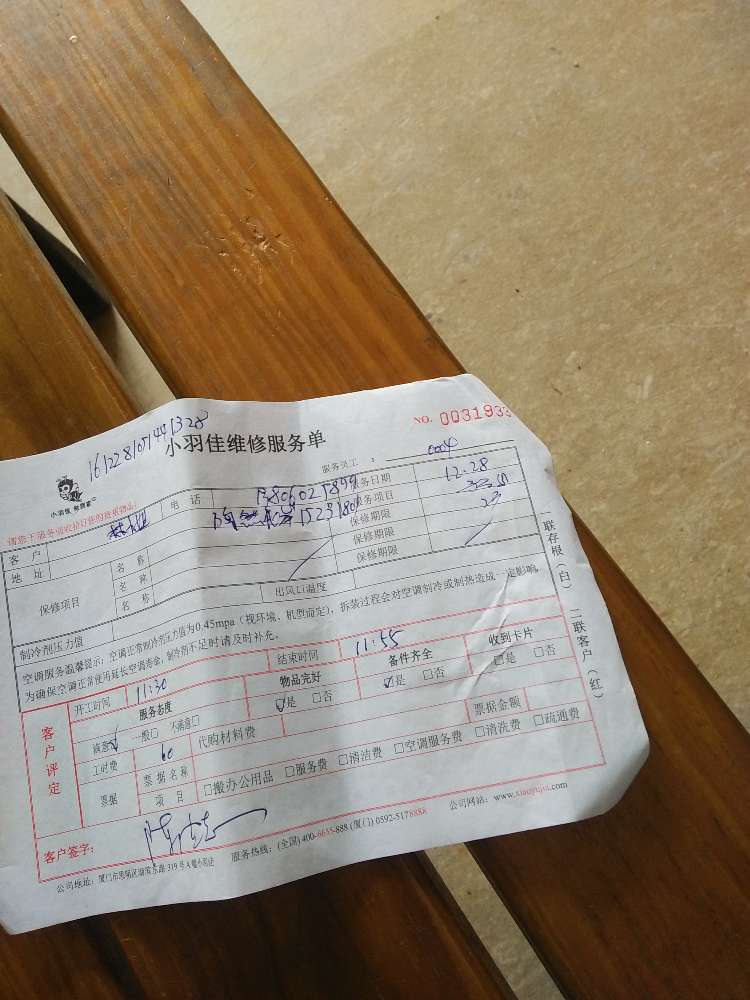 1612281071441328
小羽佳维修服务单
NO. 0031933
小羽佳 熊管家
服务员工： 0004
请您下服务前收拾好您的贵重物品！
客户 电话 服务日期 12.28
地址 服务项目
保修项目 名称 保修期限
名称 保修期限
名称 保修期限
制冷剂压力值 出风口温度
空调服务温馨提示：空调正常制冷剂压力值为0.45mpa（视环境、机型而定），拆装过程会对空调制冷或制热造成一定影响，
为确保空调正常使用延长空调寿命，制冷剂不足时请及时补充。
客户评定
开工时间 11:30 结束时间 11:55
服务态度 物品完好 备件齐全 收到卡片
满意☑ 一般□ 不满意□ ☑是 □否 ☑是 □否 □是 □否
工时费 60 代购材料费 票据金额
票据 票据名称
项目 □搬办公用品 □服务费 □清洁费 □空调服务费 □清洗费 □疏通费
客户签字：
公司地址：厦门市思明区湖滨东路319号A幢 服务热线：(全国) 400-6655-888 (厦门) 0592-5178888 公司网站：www.xiaoyujia.com
一联存根（白） 二联客户（红）